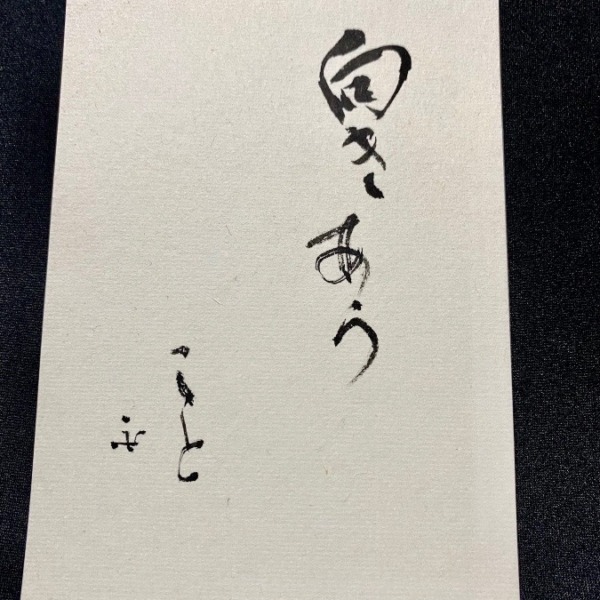 向きあう
こと